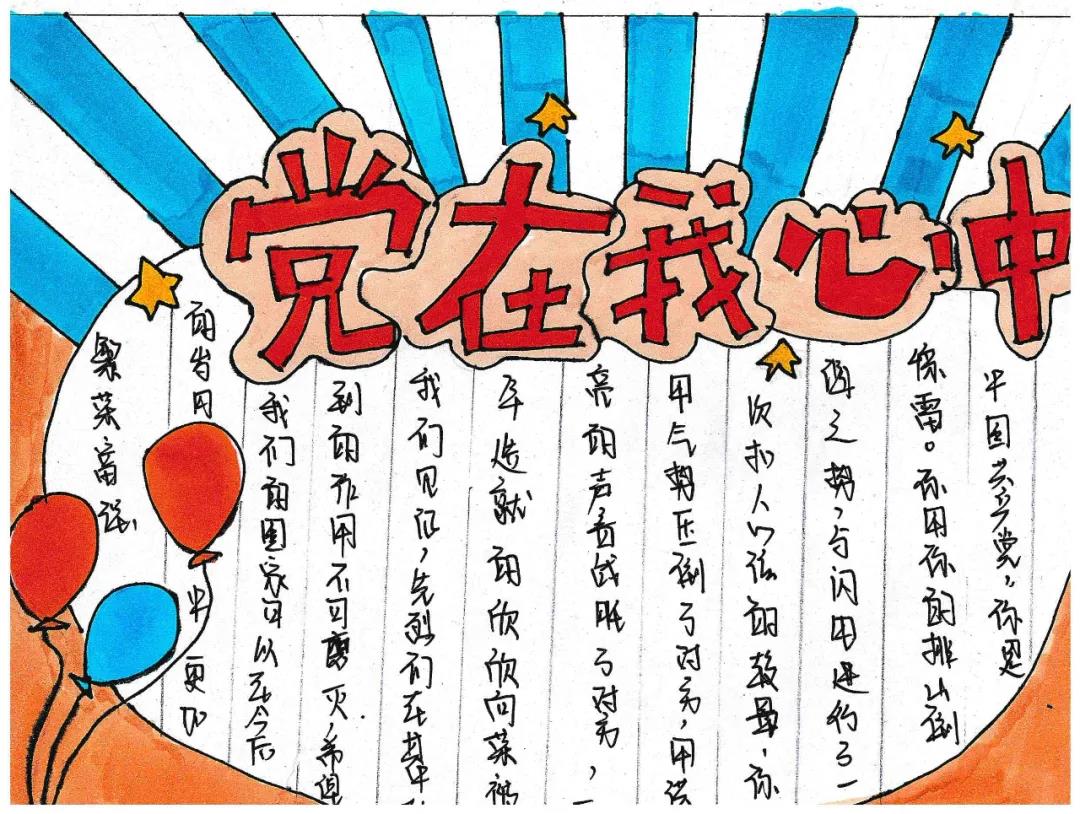 党在我心中
中国共产党，你是
惊雷。你用你的排山倒
海之势，与闪电进行了一
次扣人心弦的较量，你
用气势压倒了对方，用洪
亮的声音战胜了对方，
年造就的欣欣向荣被
我们见证，先烈们在其中
到的作用不可磨灭，希望
我们的国家可以在今后
的岁月中更加
繁荣富强